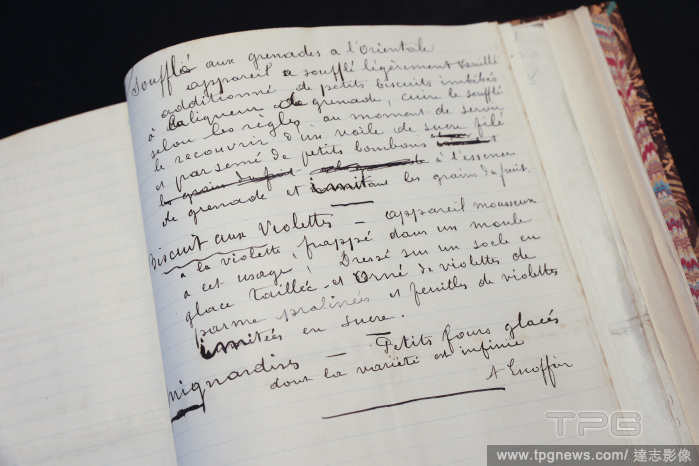 Soufflé aux grenades a l'Orientale
appareil a soufflé légèrement vanillé
additionné de petits biscuits imbibés
à la liqueur de grenade, cuire le soufflé
selon les règles, au moment de servir
le recouvrir d'un voile de sucre filé
et parsemé de petits bombons à l'essence
de grenade et imitant les grains du fruit.
Biscuit aux Violettes — appareil mousseux
à la violette, frappé dans un moule
à cet usage, Dressé sur un socle en
glace taillée et Orné de violettes de
parme pralinées et feuilles de violettes
imitées en sucre.
mignardises — Petits fours glacés
dont la variété est infinie
A Escoffier
TPG
www.tpgnews.com/ 達志影像